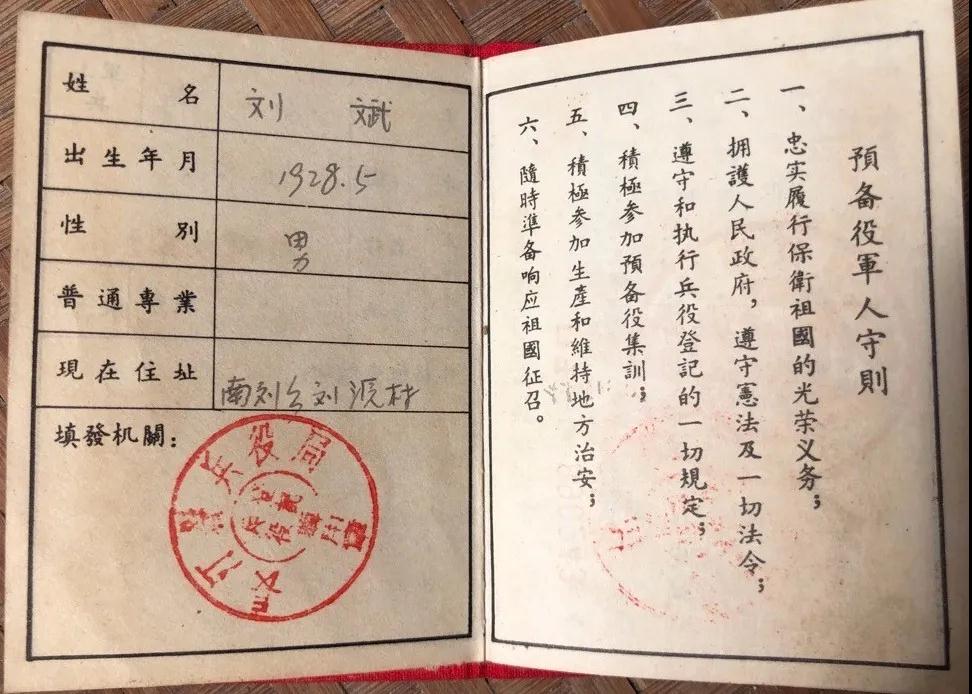 姓名 刘斌
出生年月 1928.5
性別 男
普通專業
現在住址 南刘 刘 村
填發机關:
交河縣兵役局
兵役登記
預备役軍人守則
一、忠实履行保衛祖國的光荣义务;
二、拥護人民政府,遵守憲法及一切法令;
三、遵守和执行兵役登記的一切規定;
四、積極参加預备役集訓;
五、積極参加生產和維持地方治安;
六、隨時準备响应祖國征召。